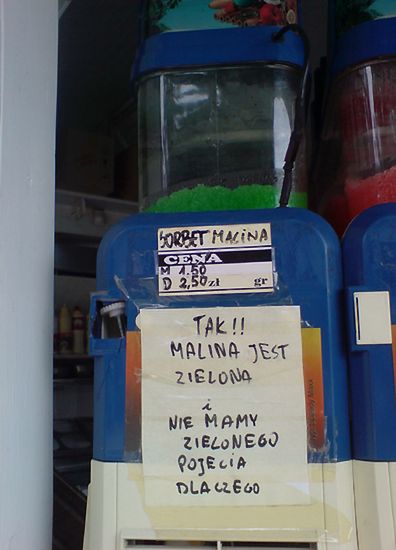 SORBET MALINA
CENA
M 1.50
D 2,50 zł gr
TAK!!
MALINA JEST
ZIELONA
i
NIE MAMY
ZIELONEGO
POJĘCIA
DLACZEGO